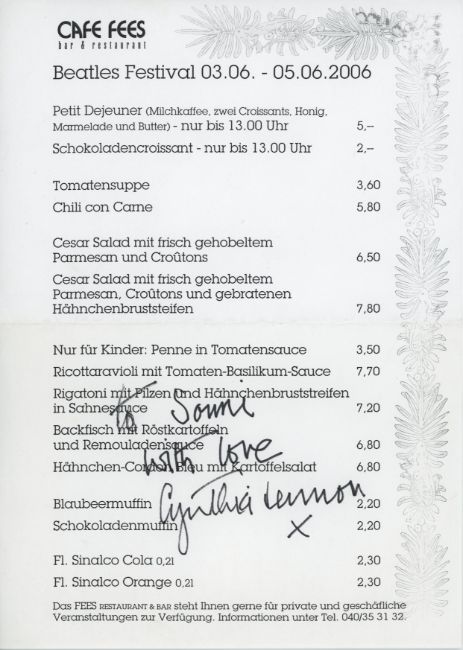 CAFE FEES
bar & restaurant
Beatles Festival 03.06. - 05.06.2006
Petit Dejeuner (Milchkaffee, zwei Croissants, Honig,
Marmelade und Butter) - nur bis 13.00 Uhr 5,–
Schokoladencroissant - nur bis 13.00 Uhr 2,–
Tomatensuppe 3,60
Chili con Carne 5,80
Cesar Salad mit frisch gehobeltem
Parmesan und Croûtons 6,50
Cesar Salad mit frisch gehobeltem
Parmesan, Croûtons und gebratenen
Hähnchenbruststeifen 7,80
Nur für Kinder: Penne in Tomatensauce 3,50
Ricottaravioli mit Tomaten-Basilikum-Sauce 7,70
Rigatoni mit Pilzen und Hähnchenbruststreifen
in Sahnesauce 7,20
To Sonni
Backfisch mit Röstkartoffeln
und Remouladensauce 6,80
with Love
Hähnchen-Cordon Bleu mit Kartoffelsalat 6,80
Cynthia Lennon
x
Blaubeermuffin 2,20
Schokoladenmuffin 2,20
Fl. Sinalco Cola 0,2l 2,30
Fl. Sinalco Orange 0,2l 2,30
Das FEES RESTAURANT & BAR steht Ihnen gerne für private und geschäfliche
Veranstaltungen zur Verfügung. Informationen unter Tel. 040/35 31 32.